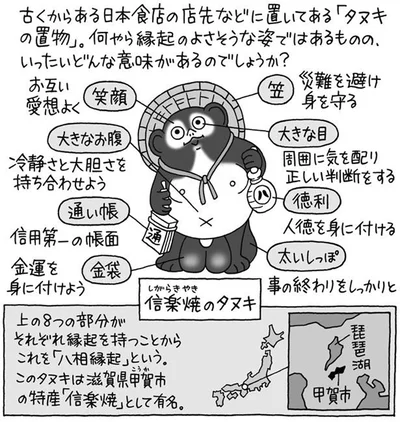 古くからある日本食店の店先などに置いてある「タヌキ
の置物」。何やら縁起のよさそうな姿ではあるものの、
いったいどんな意味があるのでしょうか?
お互い
愛想よく
笑顔
笠
災難を避け
身を守る
大きなお腹
冷静さと大胆さを
持ち合わせよう
大きな目
周囲に気を配り
正しい判断をする
通い帳
信用第一の帳面
通
八
徳利
人徳を身に付ける
金運を
身に付けよう
金袋
太いしっぽ
事の終わりをしっかりと
しがらきやき
信楽焼のタヌキ
上の8つの部分が
それぞれ縁起を持つことから
これを「八相縁起」という。
こうか
このタヌキは滋賀県甲賀市
の特産「信楽焼」として有名。
琵琶湖
甲賀市